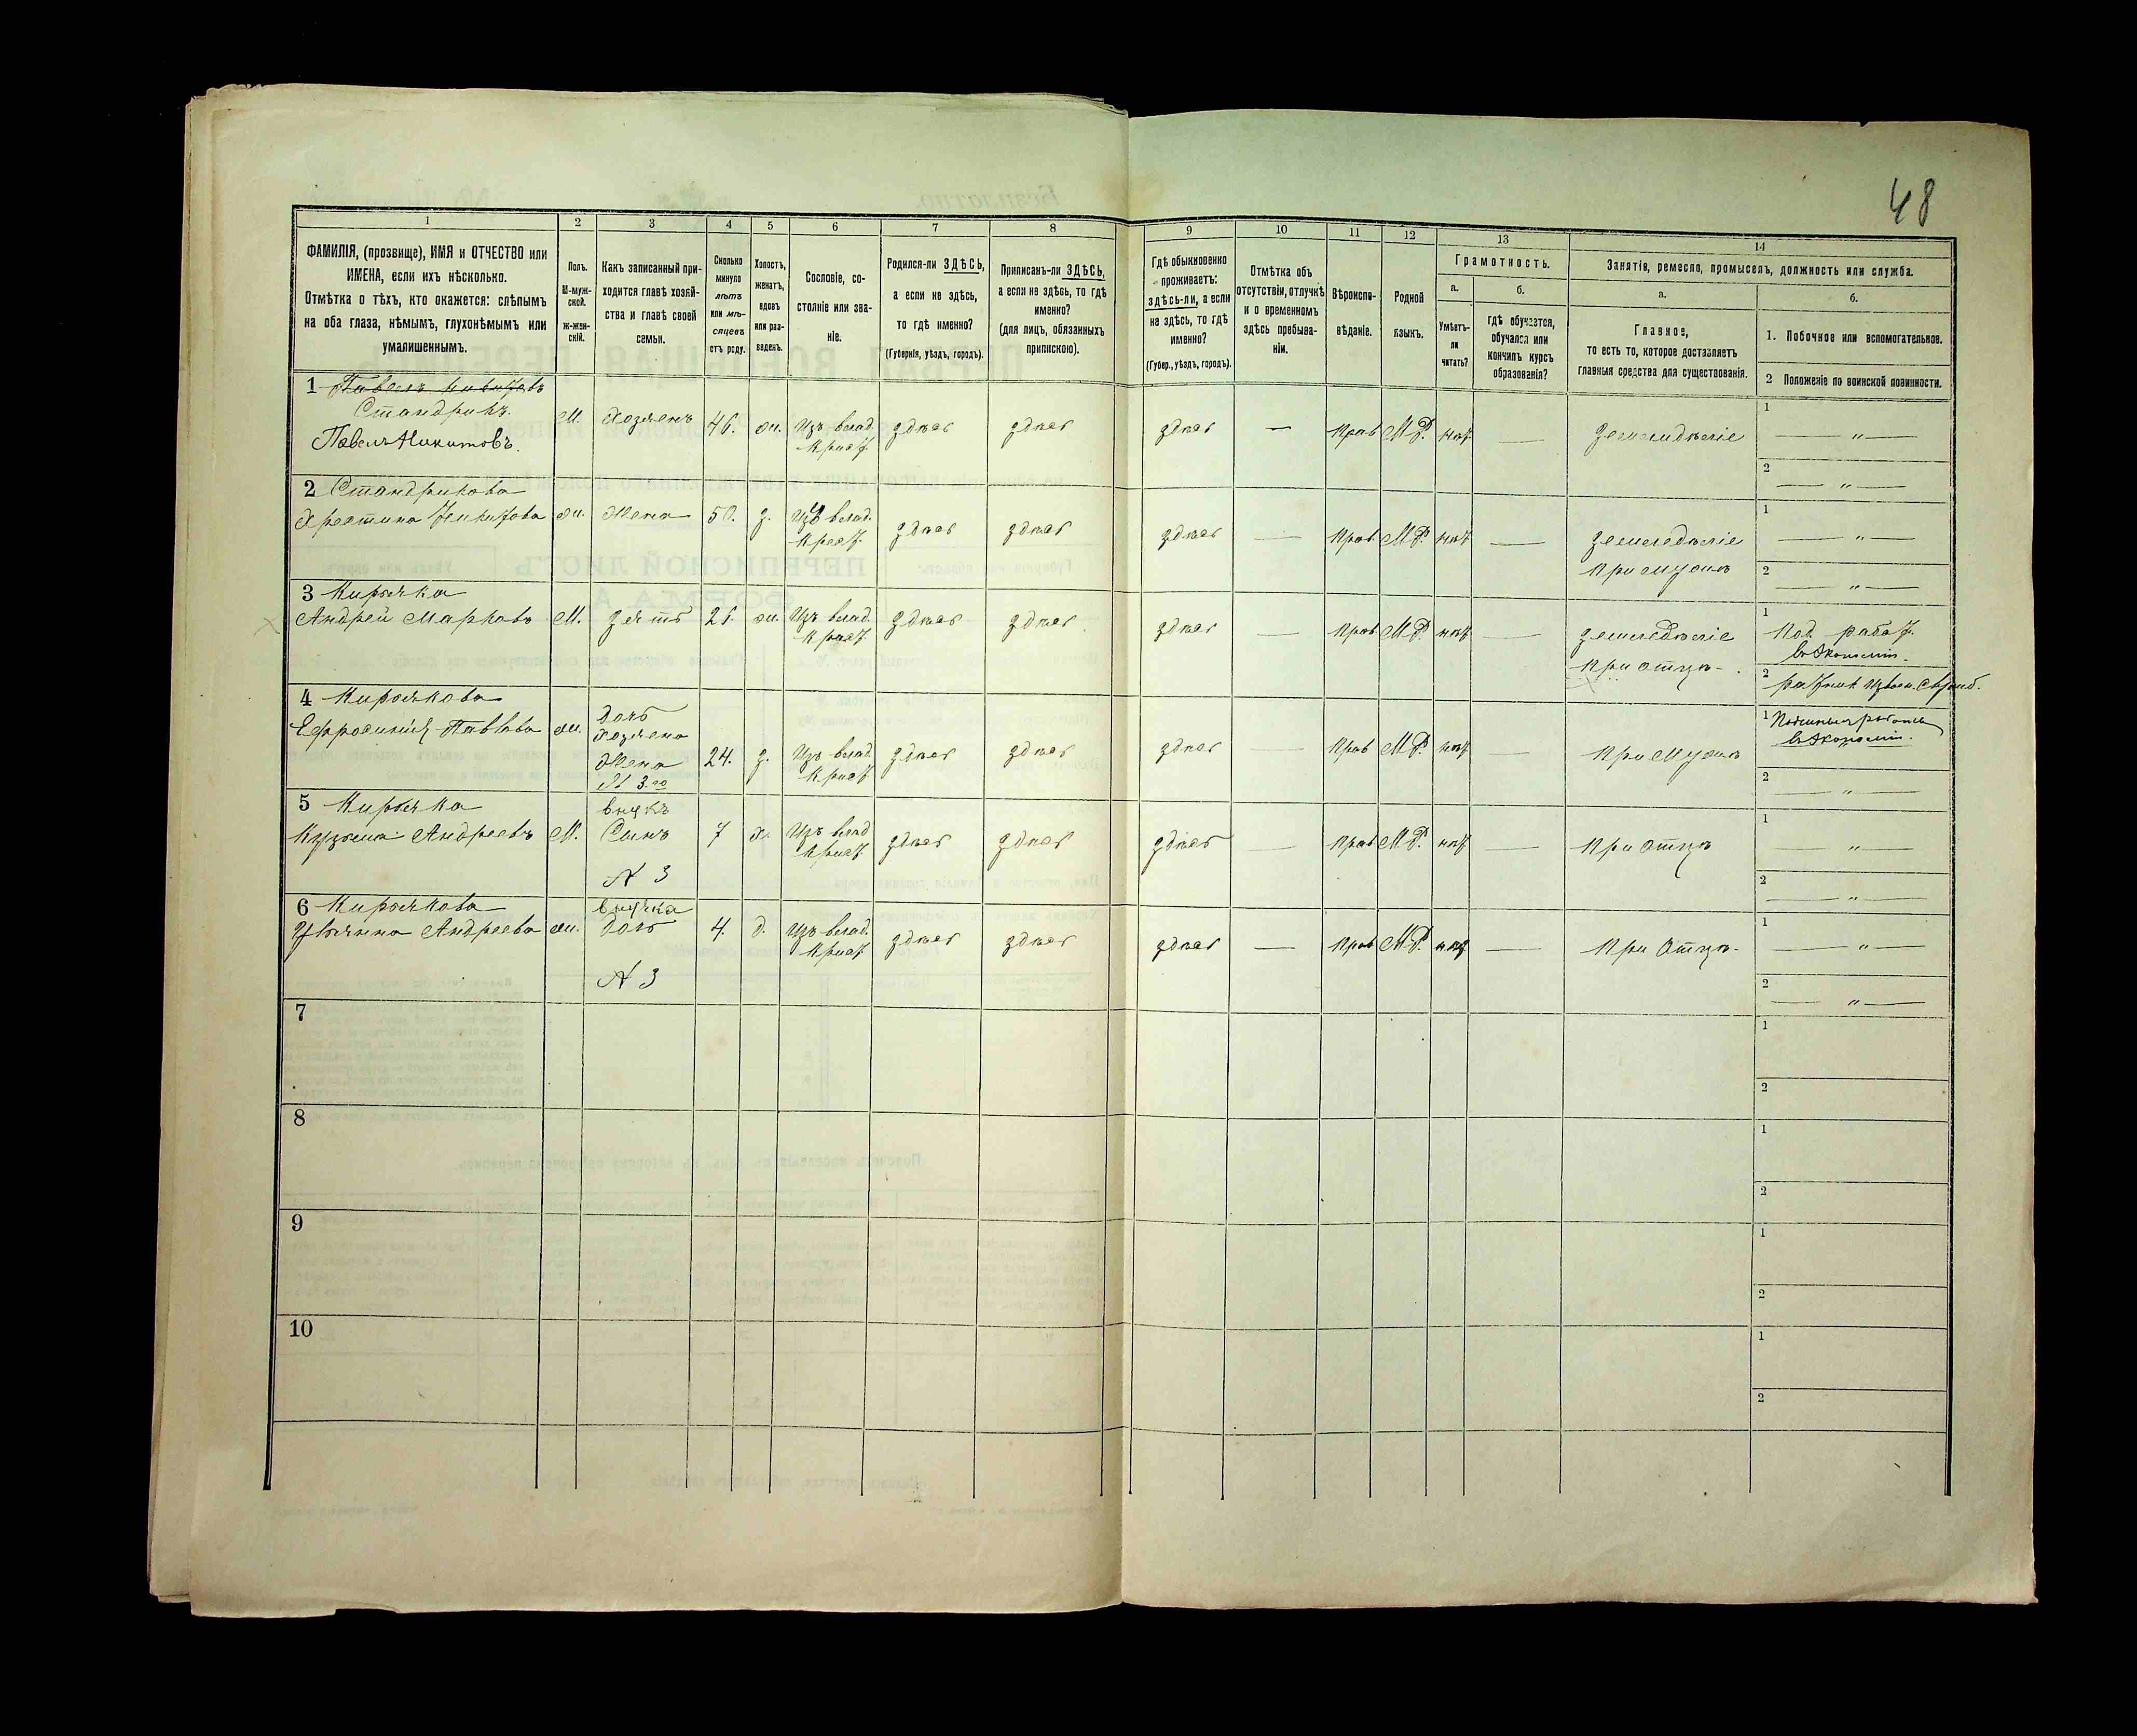 48
1 2 3 4 5 6 7 8 9 10 11 12 13 14
ФАМИЛІЯ, (прозвище), ИМЯ и ОТЧЕСТВО или
ИМЕНА, если ихъ нѣсколько.
Отмѣтка о тѣхъ, кто окажется: слѣпымъ
на оба глаза, нѣмымъ, глухонѣмымъ или
умалишеннымъ.
Полъ.
М-муж-
ской.
ж-жен-
скій.
Какъ записанный при-
ходится главѣ хозяй-
ства и главѣ своей
семьи.
Сколько
минуло
лѣтъ
или мѣ-
сяцевъ
отъ роду.
Холостъ,
женатъ,
вдовъ
или раз-
веденъ.
Сословіе, со-
стояніе или зва-
ніе.
Родился-ли ЗДѢСЬ,
а если не здѣсь,
то гдѣ именно?
(Губернія, уѣздъ, городъ).
Приписанъ-ли ЗДѢСЬ,
а если не здѣсь, то гдѣ
именно?
(для лицъ, обязанныхъ
припискою).
Гдѣ обыкновенно
проживаетъ:
здѣсь-ли, а если
не здѣсь, то гдѣ
именно?
(Губер., уѣздъ, городъ).
Отмѣтка объ
отсутствіи, отлучкѣ
и о временномъ
здѣсь пребыва-
ніи.
Вѣроиспо-
вѣданіе.
Родной
языкъ.
Грамотность.
а.
Умѣетъ-
ли
читать?
б.
гдѣ обучается,
обучался или
кончилъ курсъ
образованія?
Занятія, ремесло, промыселъ, должность или служба.
а.
Главное,
то есть то, которое доставляетъ
главныя средства для существованія.
б.
1. Побочное или вспомогательное.
2 Положеніе по воинской повинности.
1 Павелъ Никитовъ
Стандрикъ.
Павелъ Никитовъ.
М. Хозяенъ 46. ж. Изъ влад. крест. здѣсь здѣсь здѣсь — прав. М.Р. нѣт — земледѣліе
1 — " —
2 — " —
2 Стандрикова
Христина Никитова
ж. Жена 50. з. Изъ влад. крест. здѣсь здѣсь здѣсь — прав. М.Р. нѣт — земледѣліе
при мужѣ
1 — " —
2 — " —
3 Кирячка
Андрей Марковъ
М. зять 26. ж. Изъ влад. крест. здѣсь здѣсь здѣсь — прав. М.Р. нѣт — земледѣліе
при отцѣ
1 Под. работ.
въ Экономіи.
2
4 Кирячкова
Ефросинія Павлова
ж. Дочь
Хозяена
Жена
№ 3.го
24. з. Изъ влад. крест. здѣсь здѣсь здѣсь — прав. М.Р. нѣт — при мужѣ
1 Поденная работа
въ Экономіи.
2 — " —
5 Кирячка
Кузьма Андреевъ
М. внукъ
Сынъ
№ 3
7 х. Изъ влад. крест. здѣсь здѣсь здѣсь — прав. М.Р. нѣт — при отцѣ
1 — " —
2 — " —
6 Кирячкова
Ульянна Андреева
ж. внучка
дочь
№ 3
4. д. Изъ влад. крест. здѣсь здѣсь здѣсь — прав. М.Р. нѣт — при отцѣ
1 — " —
2 — " —
7
1
2
8
1
2
9
1
2
10
1
2